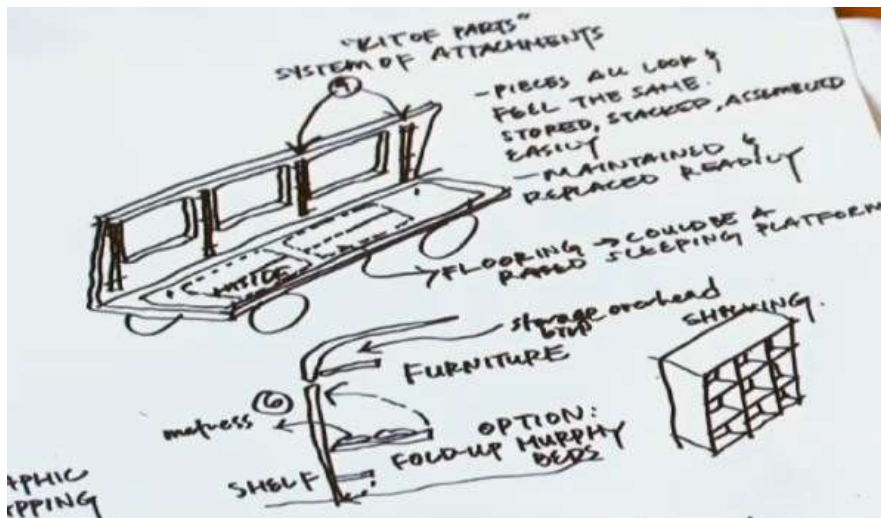 "KIT OF PARTS"
SYSTEM OF ATTACHMENTS
- PIECES ALL LOOK &
FEEL THE SAME.
STORED, STACKED, ASSEMBLED
EASILY
- MAINTAINED &
REPLACED READILY
FLOORING → COULD BE A
RAISED SLEEPING PLATFORM
storage overhead
FURNITURE
SHELVING.
6
matress
OPTION:
FOLD-UP MURPHY
BEDS
SHELF
APHIC
PPING